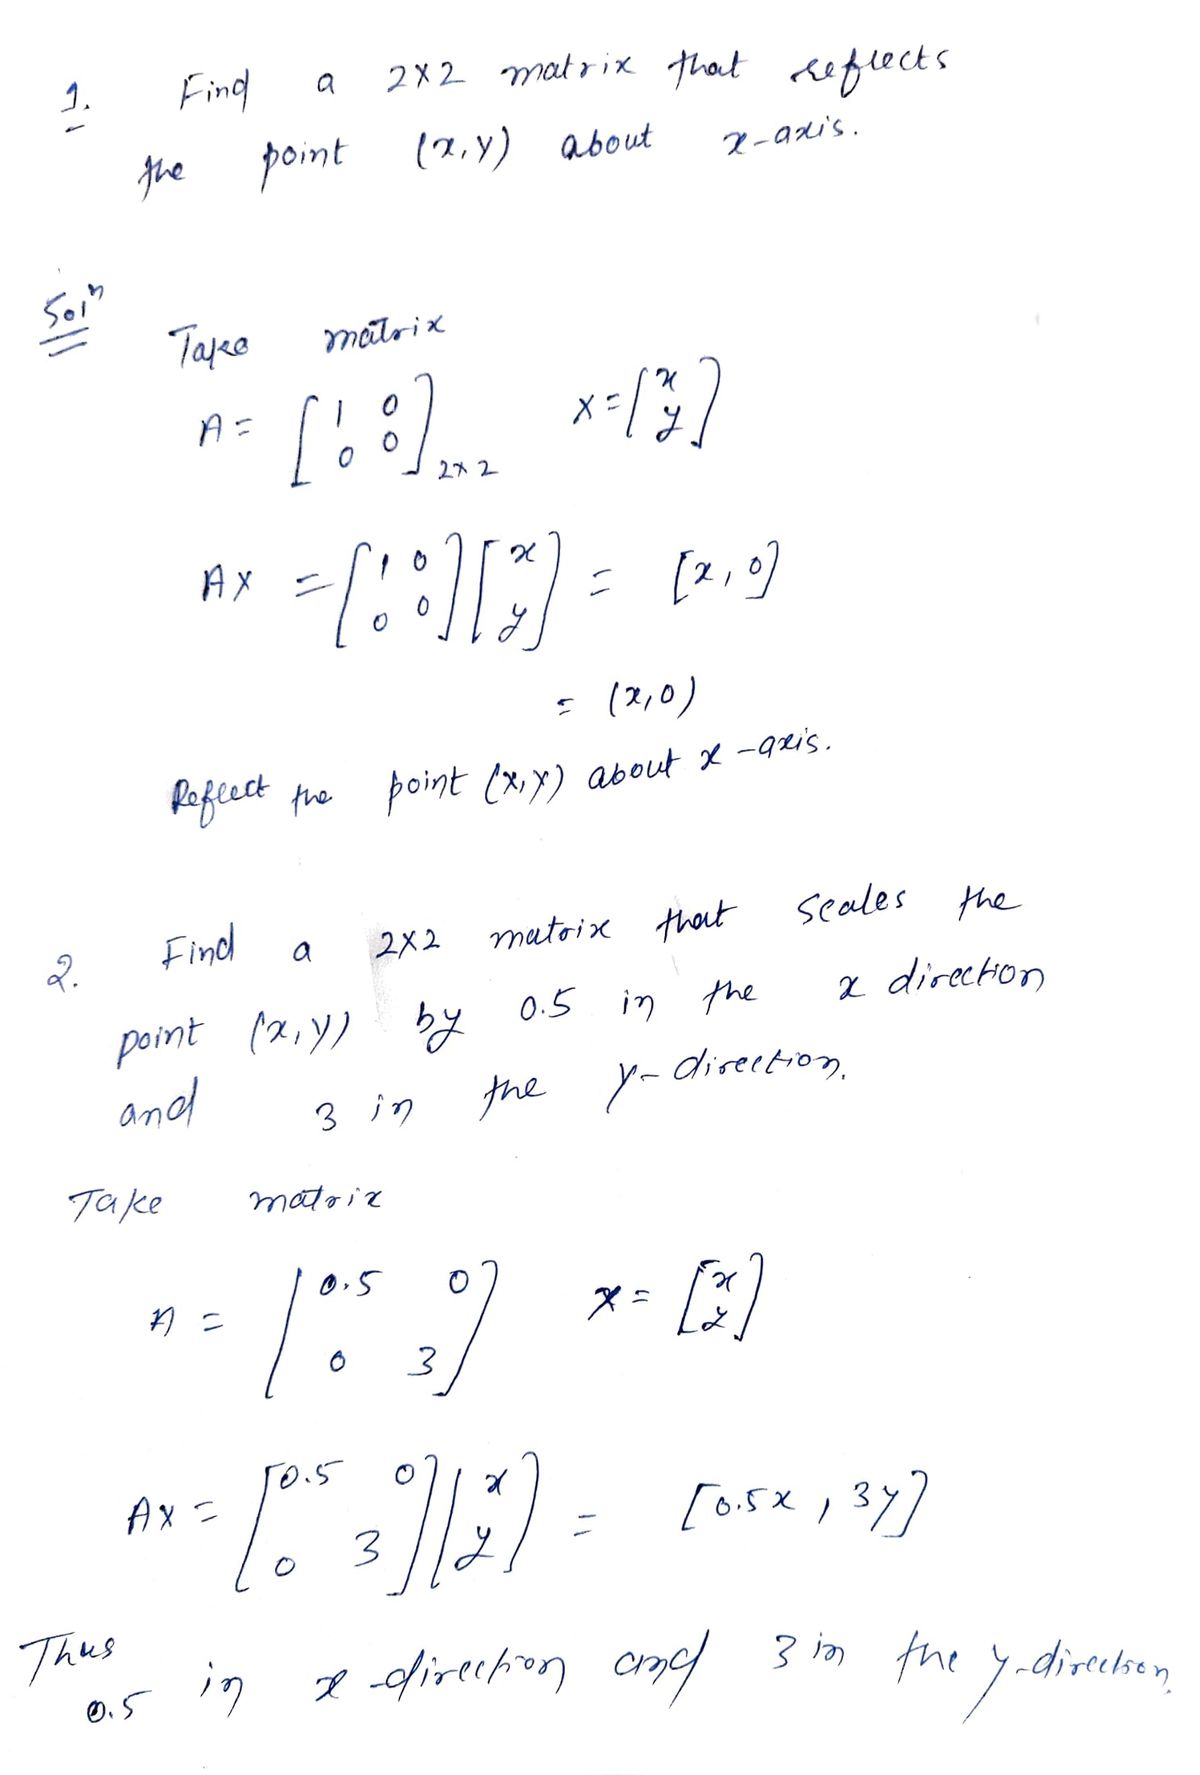 1. Find a 2×2 matrix that reflects
the point (x,y) about x-axis.
Solⁿ
Take matrix
A = [1 0
0 0]2×2 X = [x
y]
AX = [1 0
0 0][x
y] = [x, 0]
= (x,0)
Reflect the point (x,y) about x-axis.
2. Find a 2×2 matrix that scales the
point (x,y) by 0.5 in the x direction
and 3 in the y-direction.
Take matrix
A = [0.5 0
0 3] X = [x
y]
AX = [0.5 0
0 3][x
y] = [0.5x, 3y]
Thus
0.5 in x-direction and 3 in the y-direction.